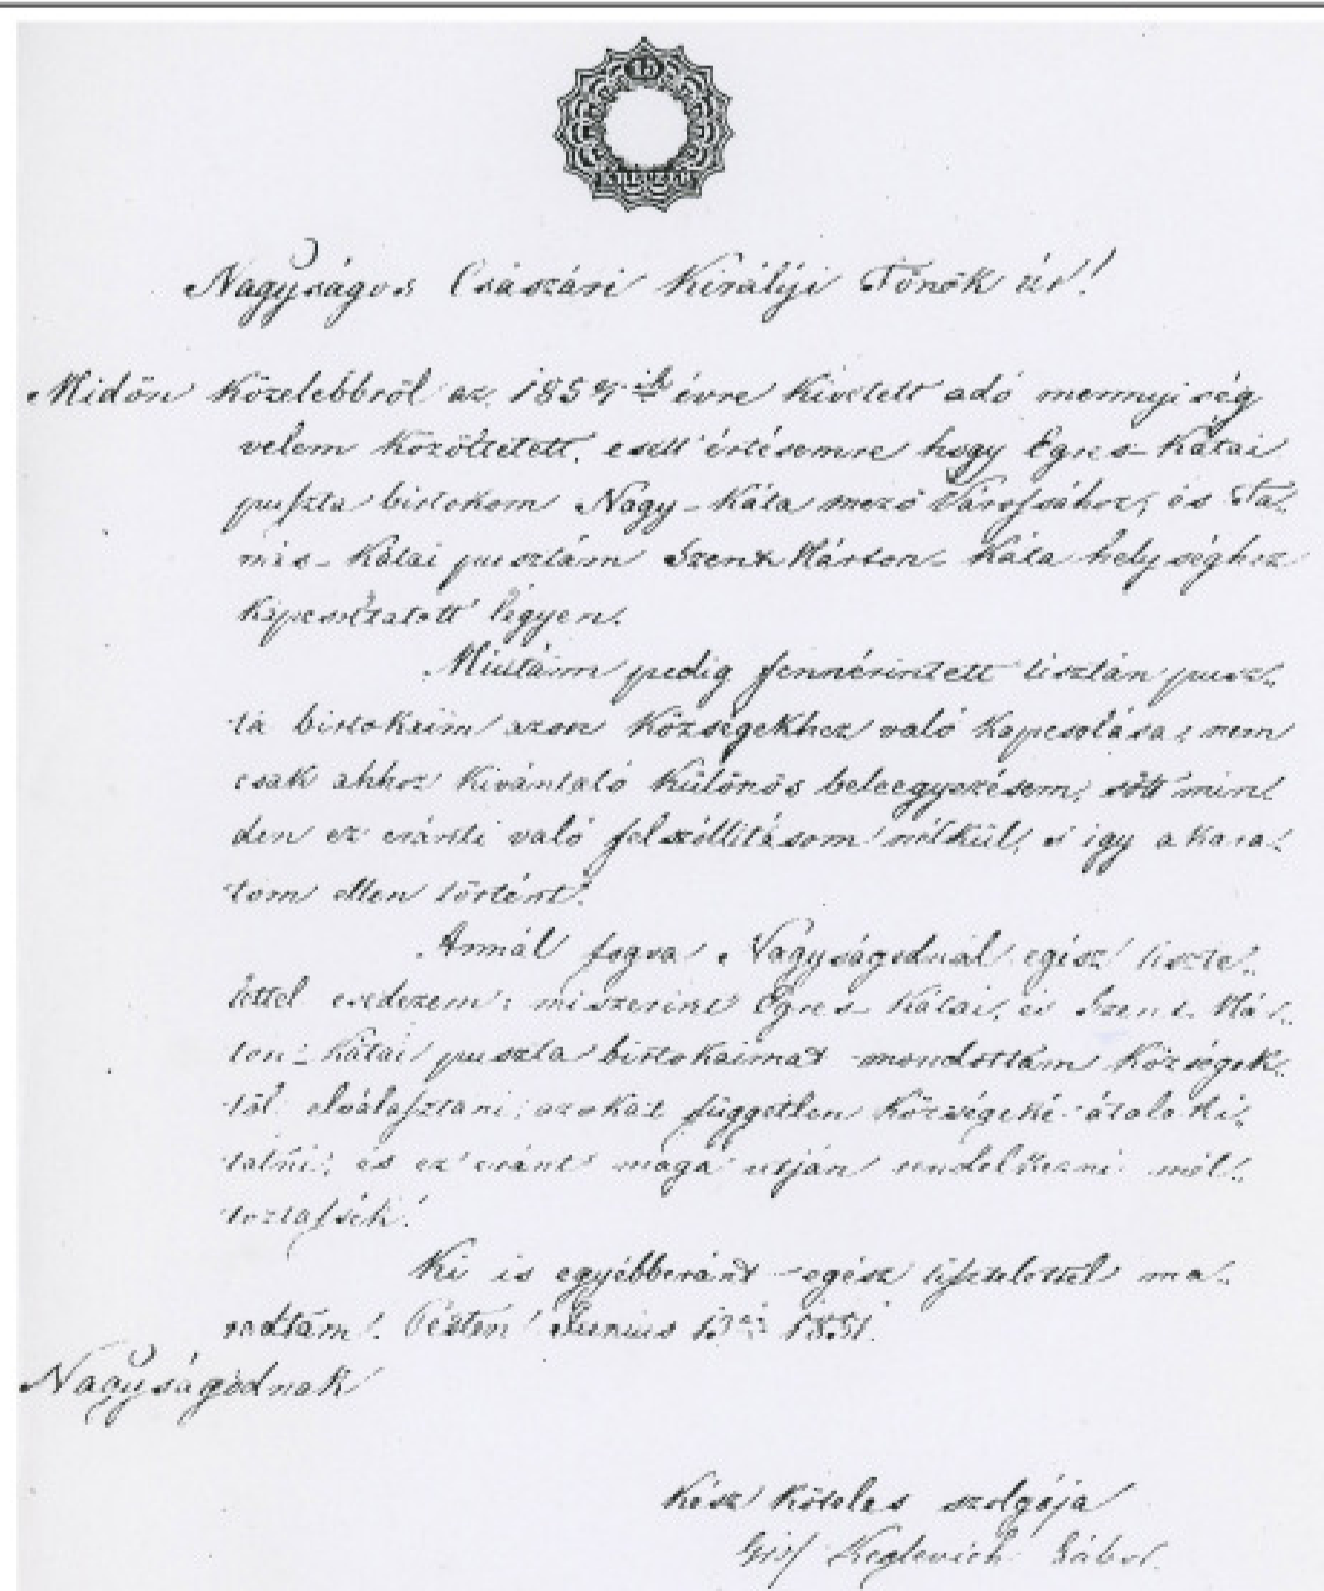 15
KREUZER
Nagyságos Császári Királyi Fönök úr!
Midőn közelebbről az évre kivetett adó mennyiség
velem közöltetett, esett értésemre hogy Egres-Kátai
puszta birtokom Nagy-Káta mező Várossához, és Ta-
más-Kátai pusztám Szent Márton-Káta helységhez
kapcsoltatott légyen.
Miutám pedig fennérintett tisztán pusz-
ta birtokaim azon községekhez való kapcsolása: nem
csak ahhoz kivántató különös beleegyezésem, sőtt min-
den ez eránti való felszóllitásom nélkül, s igy akara-
tom ellen történt.
Annál fogva Nagyságodnál egész tiszte-
lettel esedezem: miszerint Egres-Kátai, és Szent Már-
ton-Kátai puszta birtokaimat mondottam községek-
től elválasztani, azokat független községeké átalakí-
tatni; és ez eránt maga utján rendelkezni mél-
toztassék!
Ki is egyébberánt egész tisztelettel ma-
radtam. Pesten Junius
Nagyságodnak
kész köteles szolgája
Gróf Keglevich Gábor.